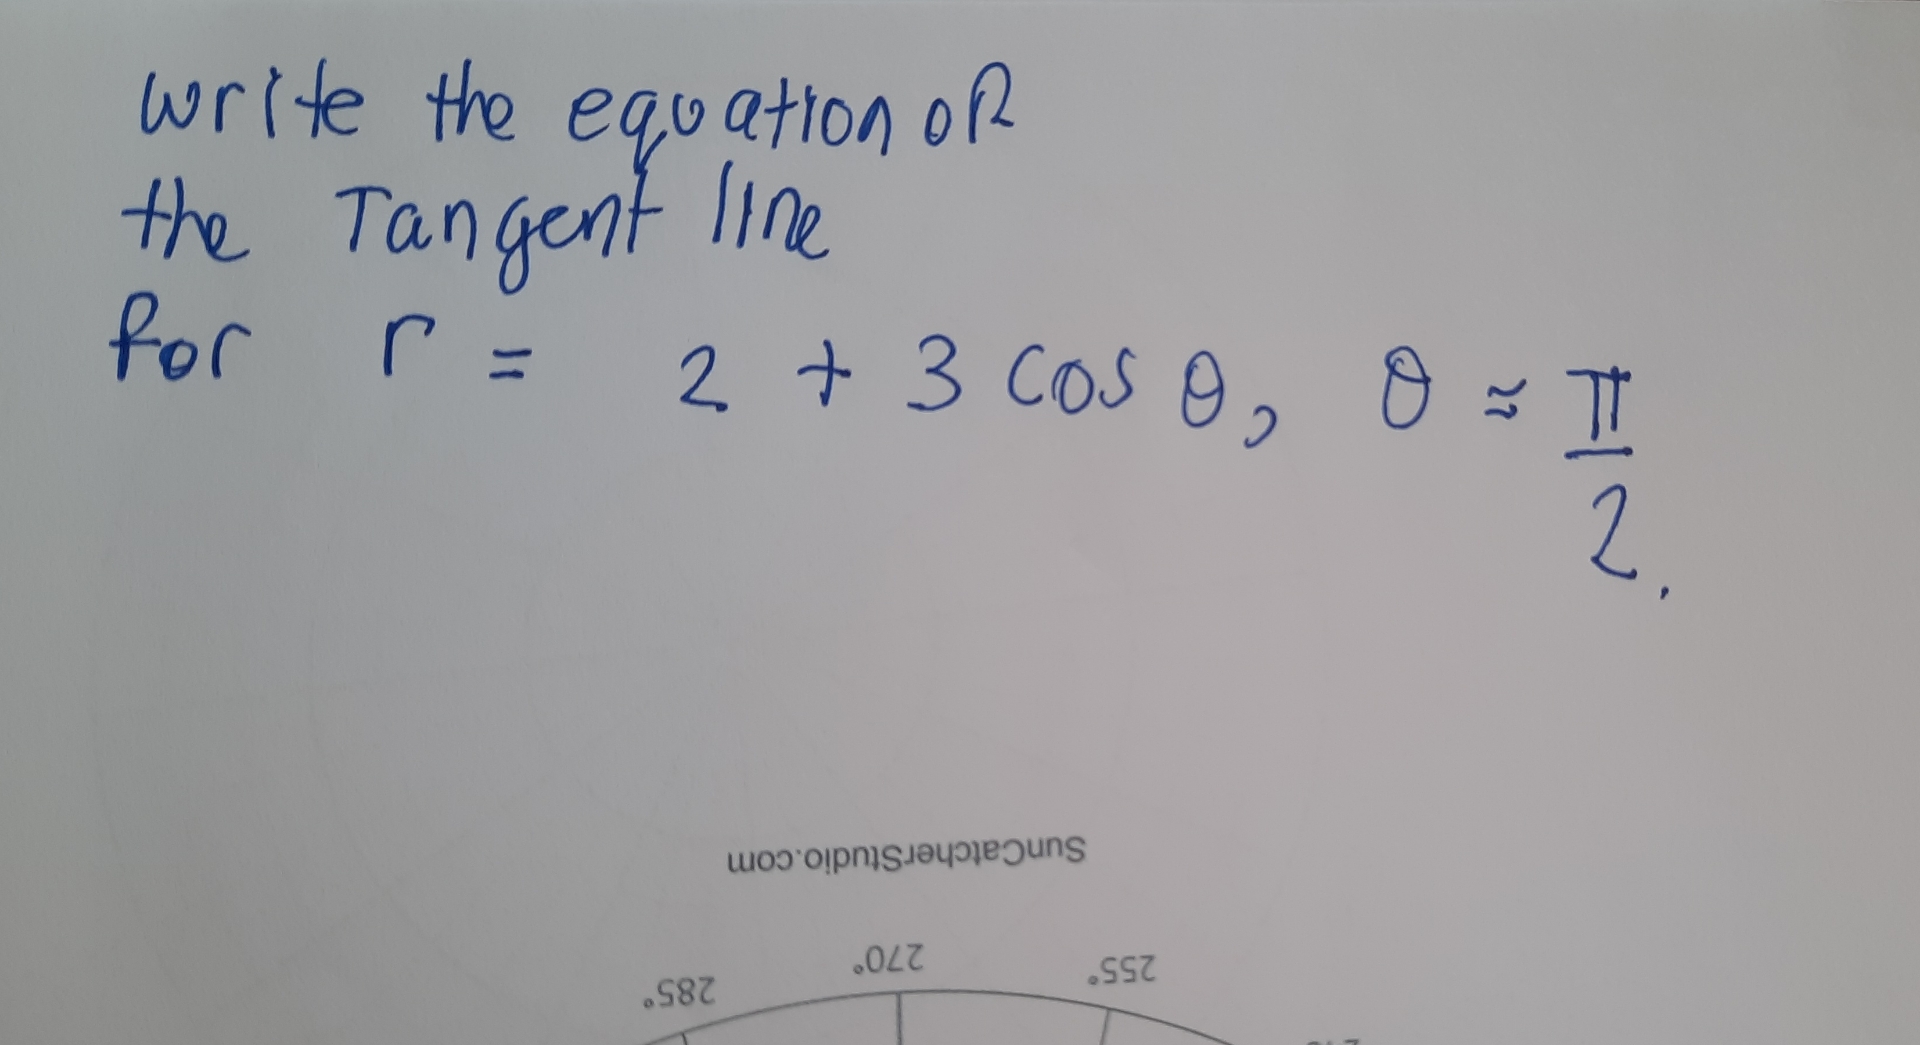 write the equation of
the Tangent line
for r = 2 + 3 cos θ, θ = π/2.
SunCatcherStudio.com
285° 270° 255°